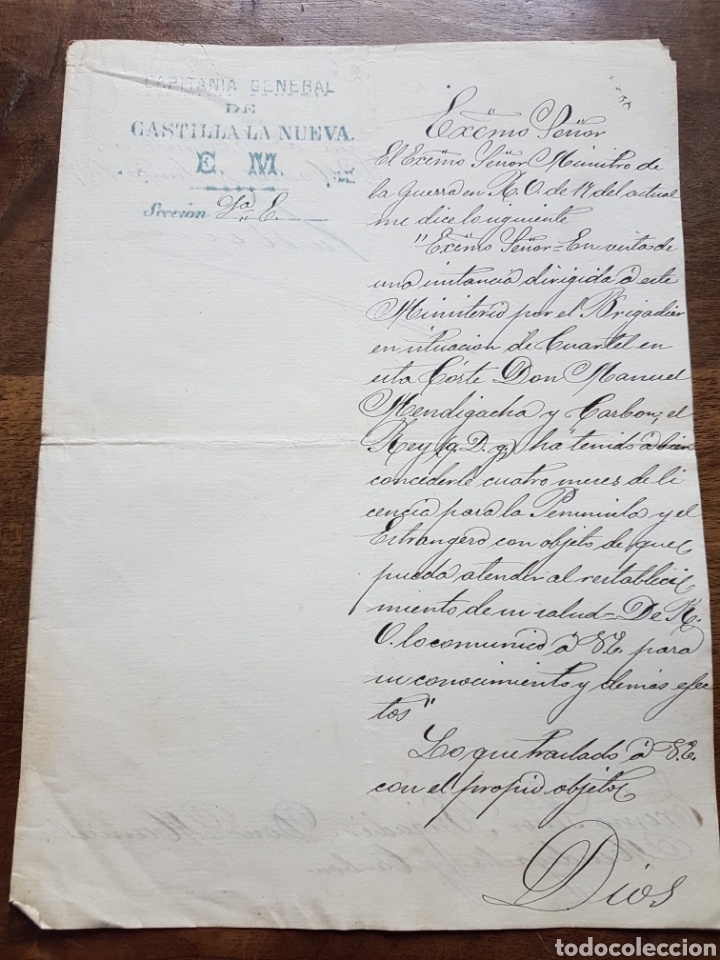 CAPITANIA GENERAL
DE
CASTILLA LA NUEVA.
E. M.
Seccion 4ª E.
Excmo Señor
El Excmo Señor Ministro de
la Guerra en R. O. de 17 del actual
me dice lo siguiente
"Excmo Señor = En vista de
una instancia dirigida á este
Ministerio por el Brigadier
en situacion de Cuartel en
esta Córte Don Manuel
Mendigacha y Carbon, el
Rey (q. D. g.) ha tenido á bien
concederle cuatro meses de li
cencia para la Peninsula y el
Estrangero con objeto de que
pueda atender al restableci
miento de su salud = De R.
O. lo comunico á V.E. para
su conocimiento y demas efec
tos"
Lo que traslado á V.E.
con el propio objeto
Dios
todocoleccion